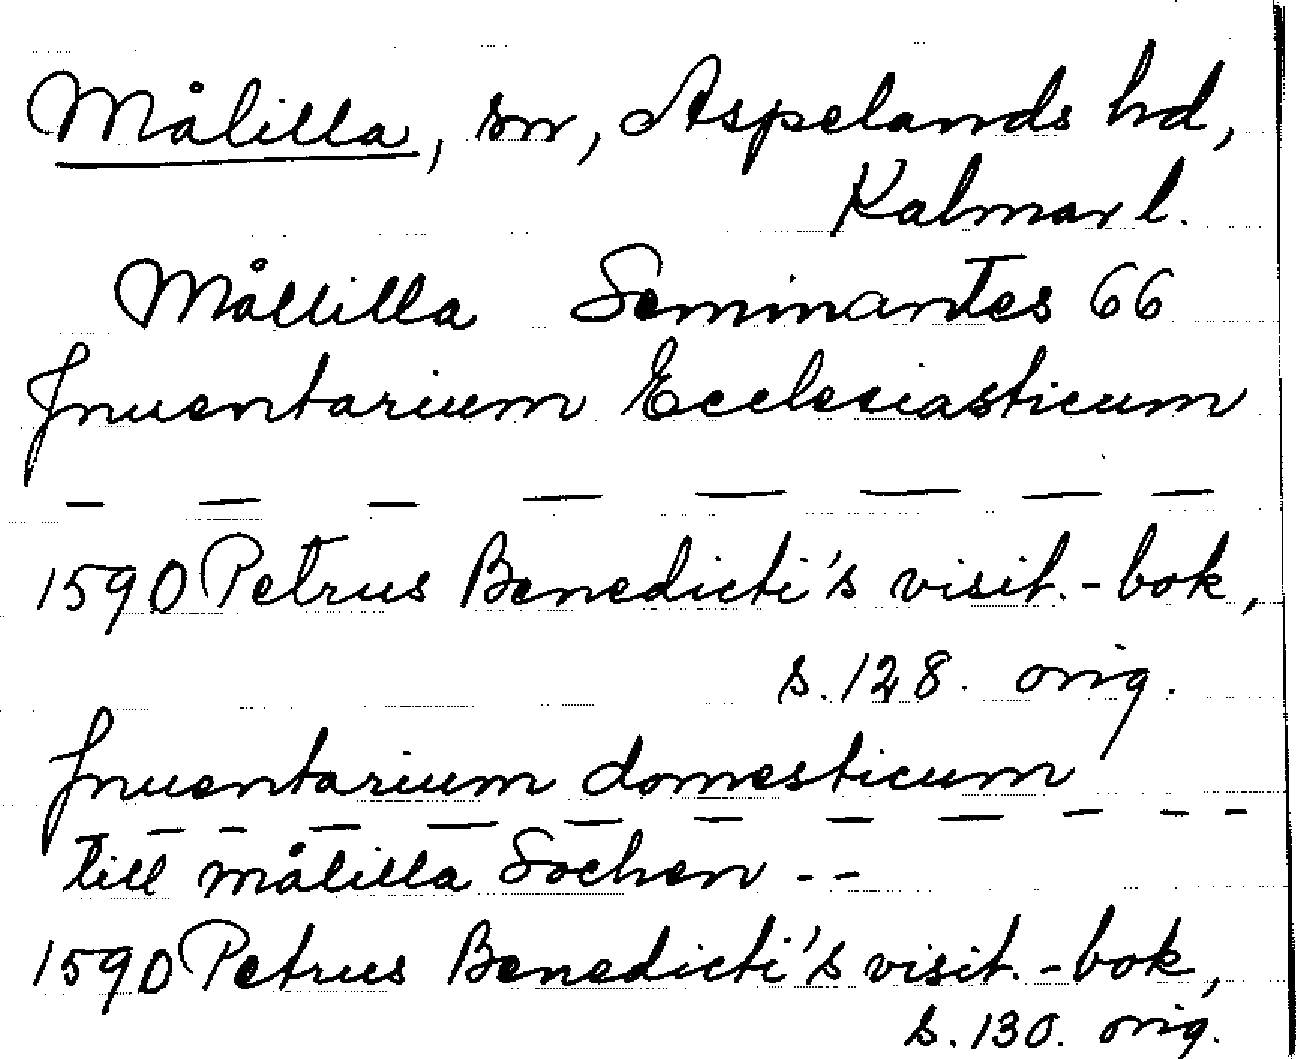 Målilla, sn, Aspelands hd,
Kalmar l.
Mållilla Seminantes 66
Inuentarium Ecclesiasticum
— — — — — — — —
1590 Petrus Benedicti's visit.-bok,
s. 128. orig.
Inuentarium domesticum
— — — — — — — — — — —
till målilla Sochen --
1590 Petrus Benedicti's visit.-bok,
s. 130. orig.